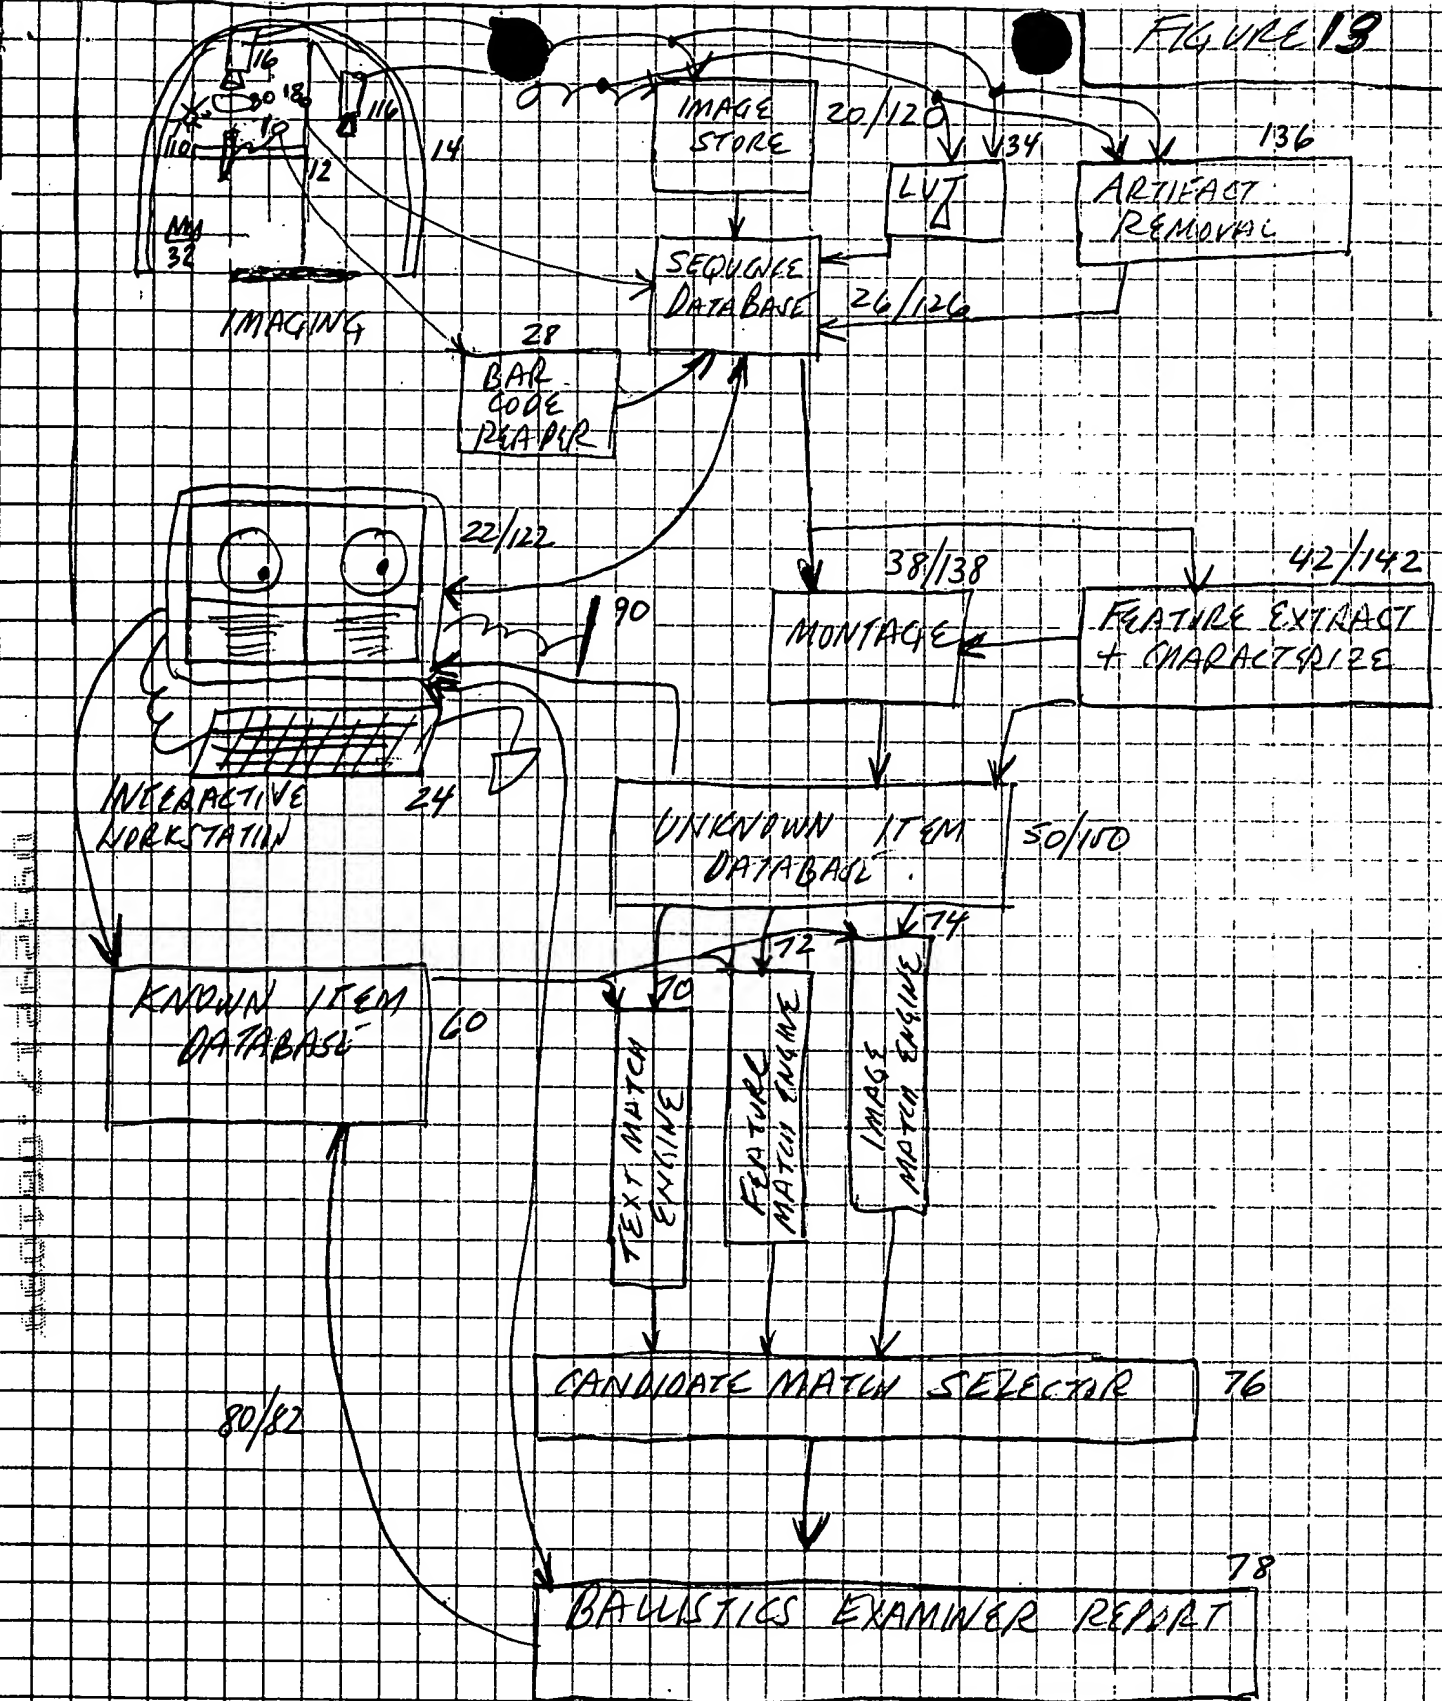 FIGURE 13
16
80
18
116
110
10
12
14
NM
32
IMAGING
IMAGE
STORE
20/120
34
LUT
136
ARTIFACT
REMOVAL
SEQUENCE
DATABASE
26/126
28
BAR
CODE
READER
22/122
90
38/138
MONTAGE
42/142
FEATURE EXTRACT
+ CHARACTERIZE
INTERACTIVE
WORKSTATION
24
UNKNOWN ITEM
DATABASE
50/150
KNOWN ITEM
DATABASE
60
70
72
74
TEXT MATCH
ENGINE
FEATURE
MATCH ENGINE
IMAGE
MATCH ENGINE
CANDIDATE MATCH SELECTOR
76
80/82
78
BALLISTICS EXAMINER REPORT